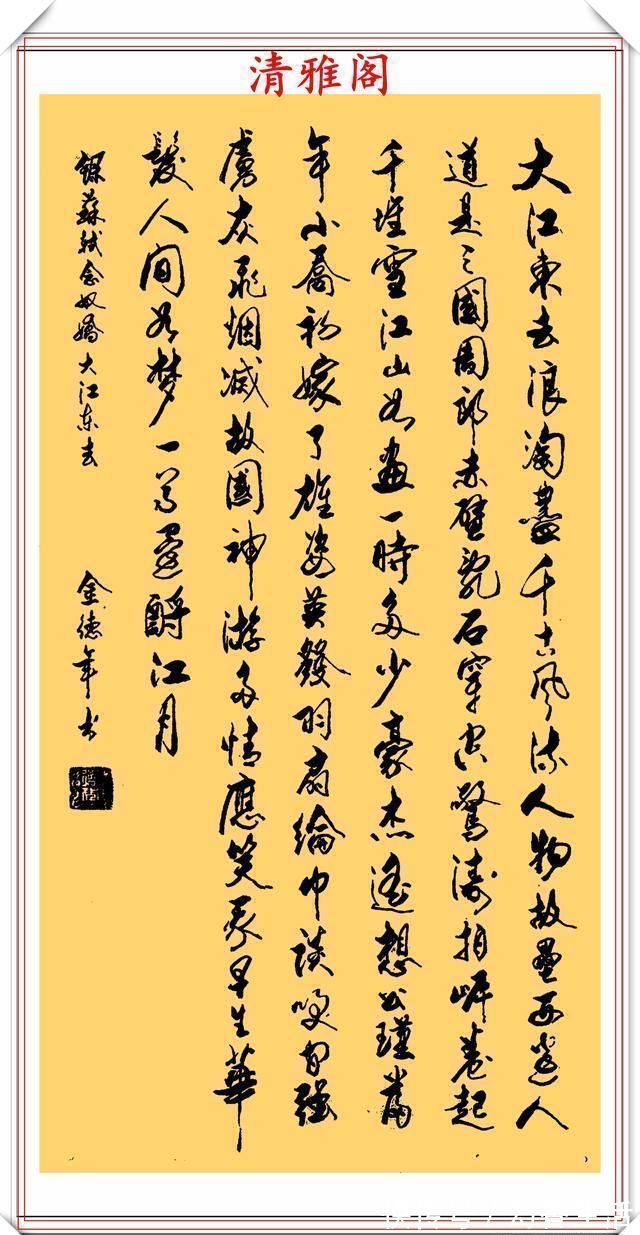 清雅阁
大江東去浪淘盡千古風流人物故壘西邊人
道是三國周郎赤壁亂石穿空驚濤拍岸卷起
千堆雪江山如畫一時多少豪杰遙想公瑾當
年小喬初嫁了雄姿英發羽扇綸巾談笑間強
虜灰飛烟滅故國神游多情應笑我早生華
髮人間如梦一尊還酹江月
錄蘇軾念奴嬌大江东去 金德年书